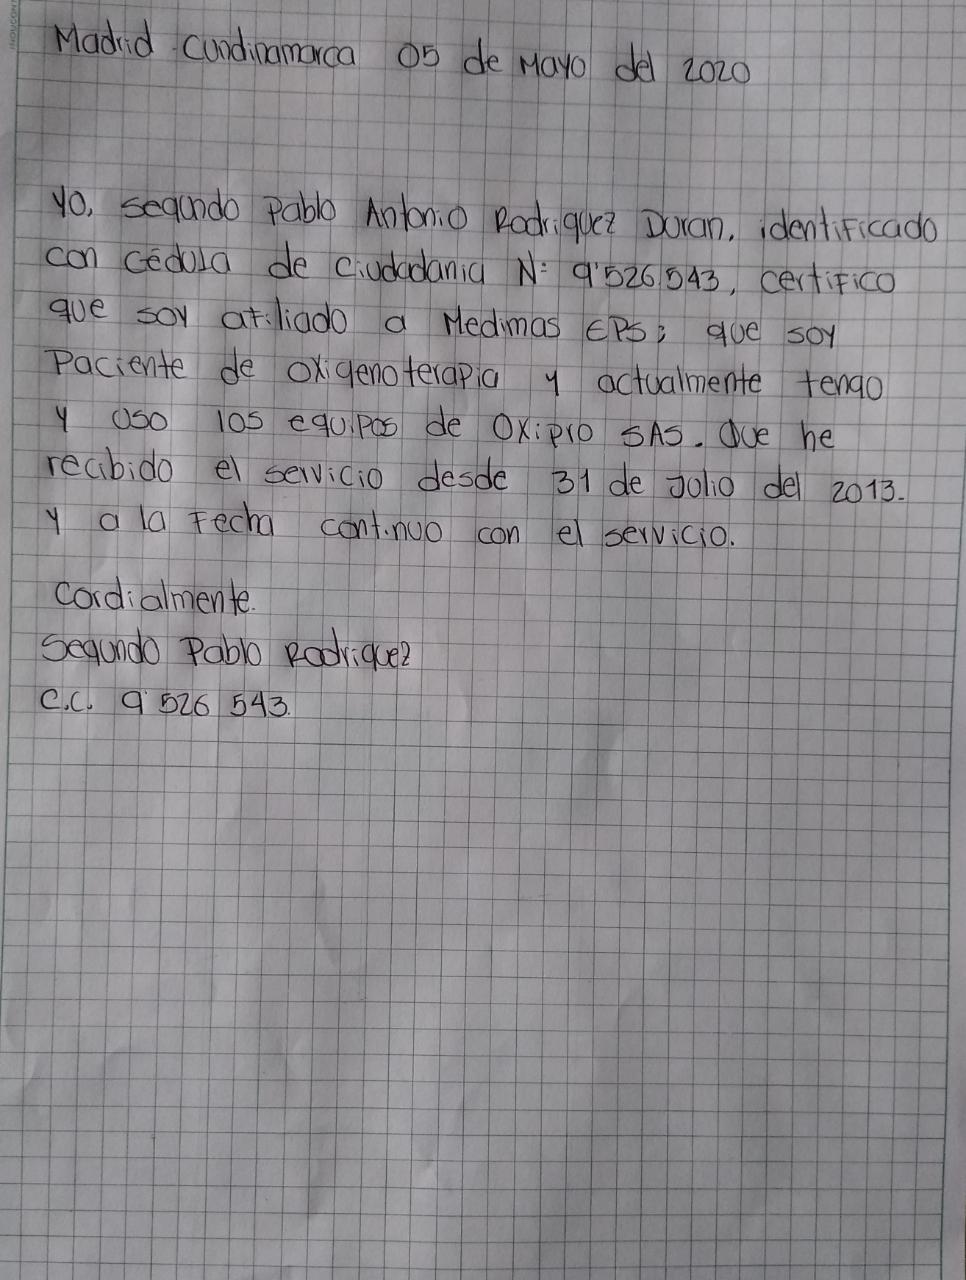 Madrid Cundinamarca 05 de Mayo del 2020
Yo, Segundo Pablo Antonio Rodriguez Duran, identificado
con cédula de Ciudadania N: 9'526.543, certifico
que soy afiliado a Medimas EPS; que soy
Paciente de oxigenoterapia y actualmente tengo
y uso los equipos de Oxipro SAS. Que he
recibido el servicio desde 31 de Julio del 2013.
y a la Fecha continuo con el servicio.
Cordialmente.
Segundo Pablo Rodriguez
C.C. 9'526 543.